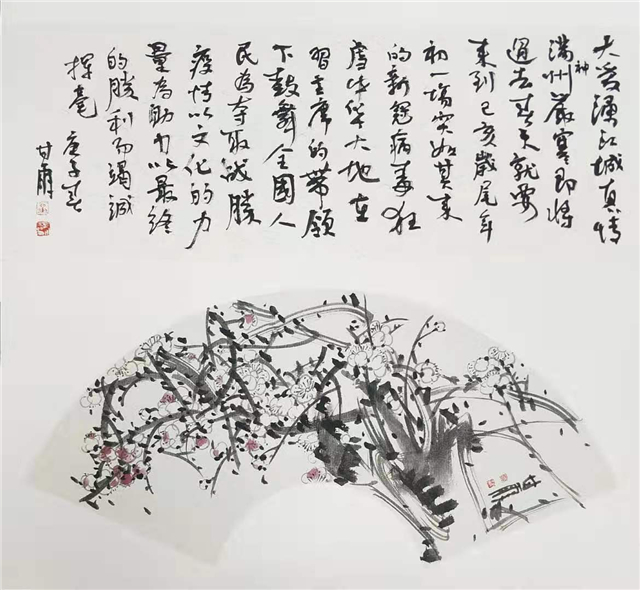 大爱漫江城真情
满神州嚴寒即將
過去春天就要
来到己亥歲尾年
初一場突如其来
的新冠病毒狂
虐中华大地在
習主席的带领
下鼓舞全國人
民為奪取战勝
疫情以文化的力
量為助力以最终
的勝利而竭誠
揮毫 庚子春